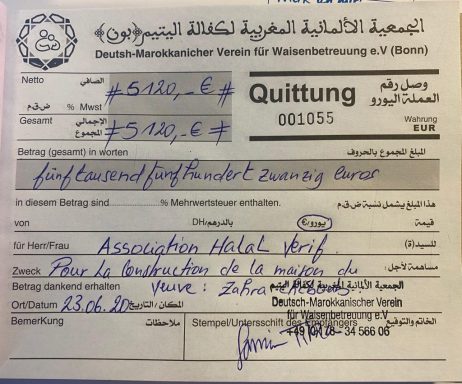 الجمعية الألمانية المغربية لكفالة اليتيم (بون)
Deutsh-Marokkanicher Verein für Waisenbetreuung e.V (Bonn)
Netto الصافي #5120,-€#
% Mwst ض.ق.م
Gesamt الإجمالي المجموع #5120,-€#
Quittung
001055
وصل رقم
العملة اليورو
Wahrung
EUR
Betrag (gesamt) in worten المبلغ المجموع بالحروف
fünftausendfünfhundert zwanzig euros
in diesem Betrag sind % Mehrwertsteuer enthalten. هذا المبلغ يشمل نسبة ض.ق.م
von DH/بالدرهم €/يورو قيمة
für Herr/Frau Association Halal Verif. للسيد(ة)
Zweck Pour la construction de la maison du مساهمة لأجل:
veuve: Zahra
Betrag dankend erhalten
Ort/Datum 23.06.20 المكان/التاريخ
الجمعية الألمانية المغربية لكفالة اليتيم
Deutsch-Marokkanischer Verein
für Waisenbetreuung e.V
+49 (0)178 - 34 566 06
BemerKung ملاحظات Stempel/Unterschrift des Empfängers الخاتم والتوقيع